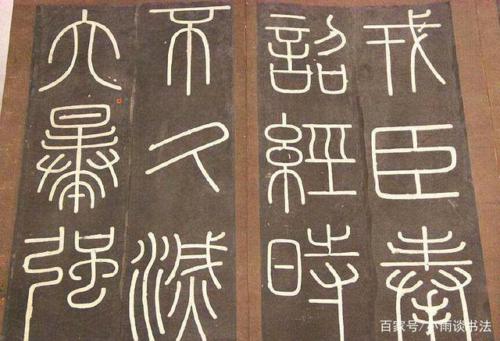 戎臣奉
詔經時
不久滅
六暴強
百家号/小雨谈书法